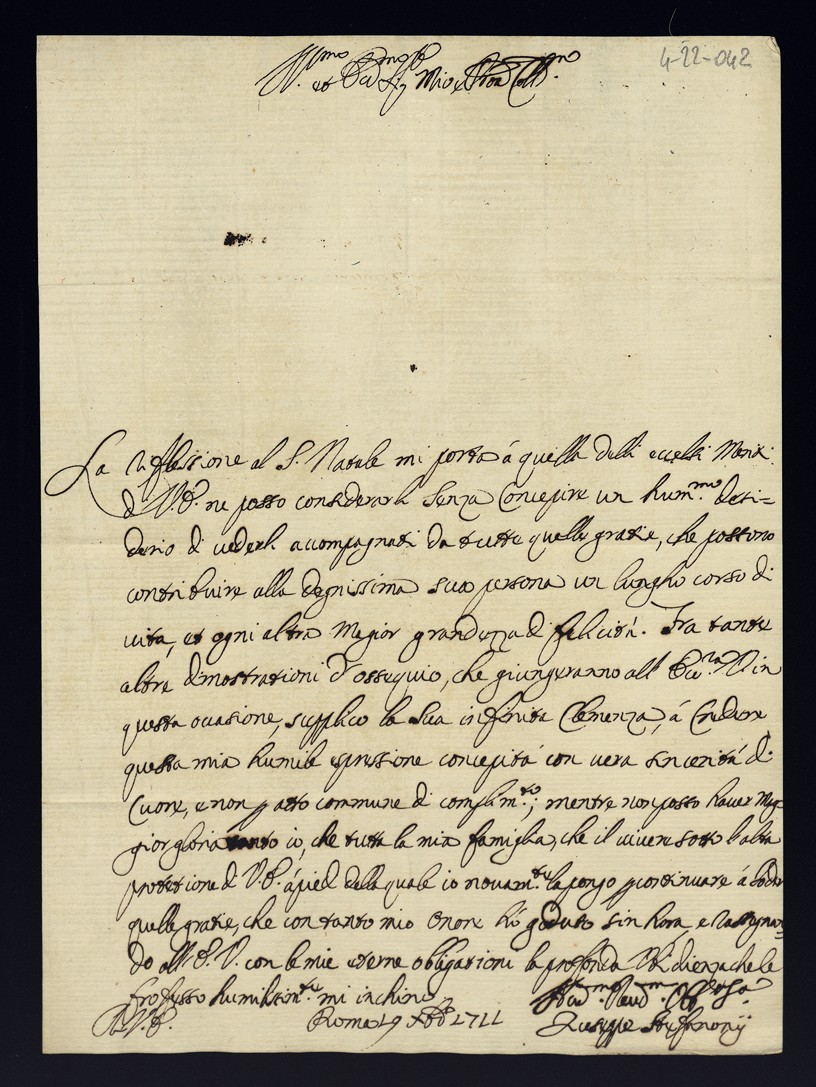 4-22-042
Ill.mo et Ecc.mo Sig.r Mio e Pron Coll.mo
La riflessione al S. Natale mi porta á quella delli eccelsi Meriti
d V.E. ne posso considerarli senza Concepire un hum.mo desi=
derio di vederli accompagnati da tutte quelle gratie, che possono
contribuire alla degnissima sua persona un lungho corso di
vita, et ogni altra Megior grandezza di felicitá. Fra tante
altre dimostrationi d'ossequio, che giungeranno all' Ecc.za V. in
questa ocasione, supplico la sua infinita Clemenza, á Credere
questa mia humile espressione concepita con vera sincerità di
Cuore, e non p atto commune di complim.to; mentre non posso haver Mag
gior gloria tanto io, che tutta la mia famiglia, che il vivere sotto l'alta
protetione d V.E. á piedi della quale io novam.te la pongo p continuare á goder
quelle gratie, che con tanto mio Onore hó goduto sin hora, e rassegnan
do all' E.V. con le mie eterne obligationi la profonda Obidienza che le
professo humilissim.te mi inchino
D V.E.
Roma 19 Xbre 1711
Hum.mo Dev.mo Obl.mo Ser.re
Giuseppe